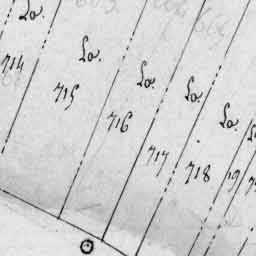 Lo.
714
Lo.
715
Lo.
716
Lo.
717
Lo.
718
19